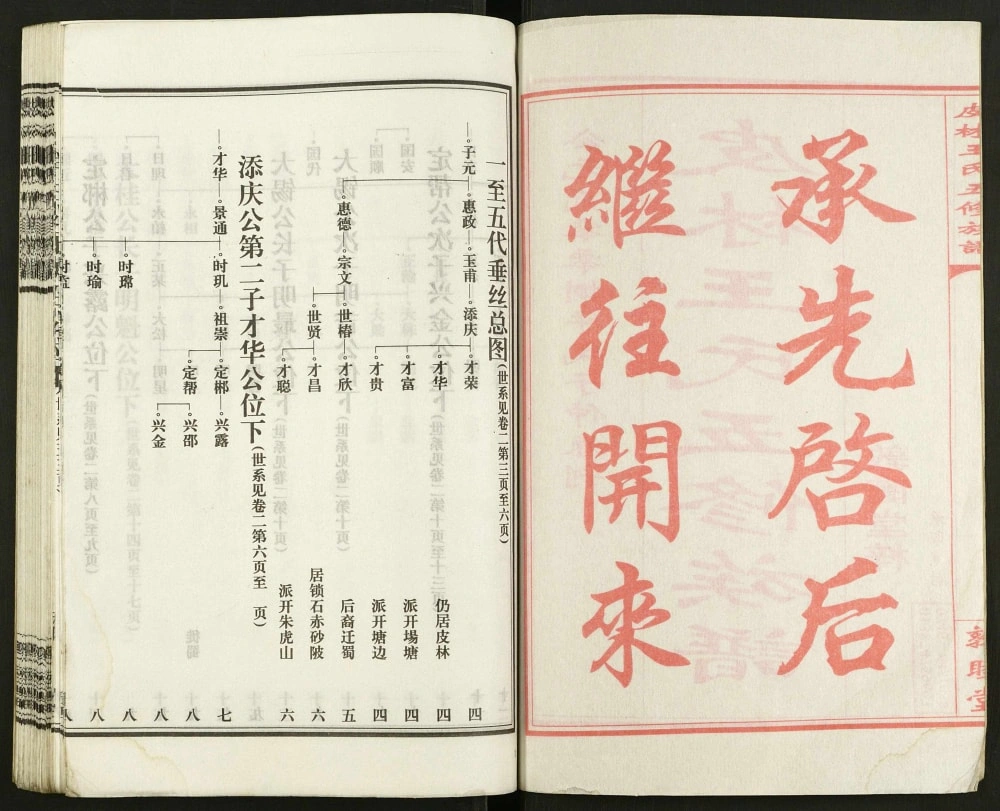 皮林王氏五修族譜
承先啓后
繼往開來
一至五代垂丝总图(世系见卷二第三页至六页)
子元 惠政 玉甫 添庆 才荣 四
才华 仍居皮林 四
才富 派开場塘 四
才贵 派开塘边 四
惠德 宗文 世椿 才欣 后裔迁蜀 五
世贤 才昌 居锁石赤砂陂 六
才聪 派开朱虎山 六
添庆公第二子才华公位下(世系见卷二第六页至 页)
才华 景通 时玑 祖崇 定郴 兴露 七
定帮 兴邵 八
兴金 八
时瑺 八
时瑜 八